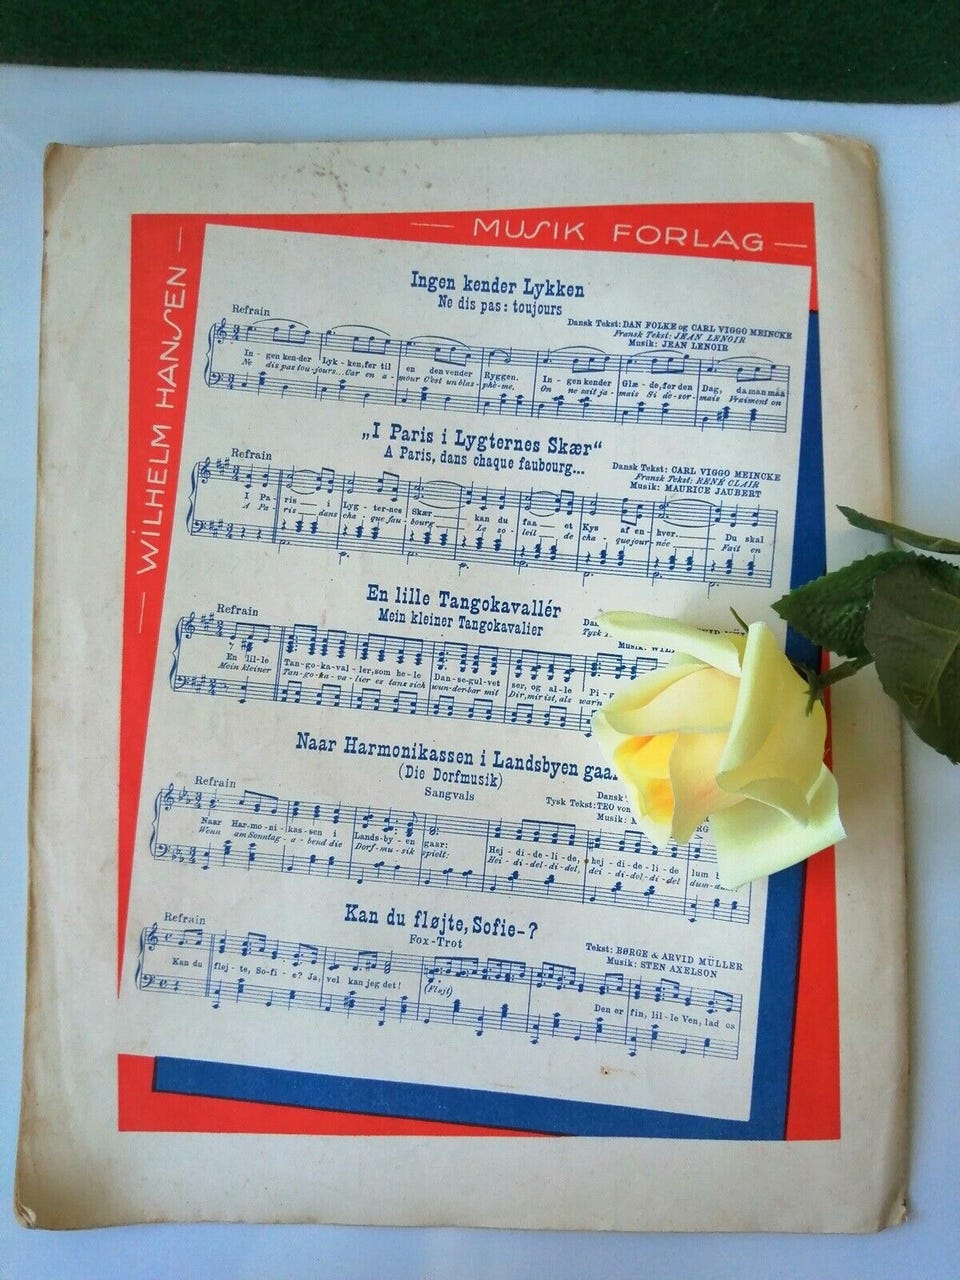 WILHELM HANSEN
MUSIK FORLAG
Ingen kender Lykken
Ne dis pas: toujours
Refrain
Dansk Tekst: DAN FOLKE og CARL VIGGO MEINCKE
Fransk Tekst: JEAN LENOIR
Musik: JEAN LENOIR
In - gen ken-der Lyk - ken, før til en den vender Ryggen. In - gen kender Glæ - de, før den Dag, da man maa
Ne dis pas tou-jours... Car en a - mour C'est un blas - phè-me, On ne sait ja - mais Si de-sor - mais Vraiment on
„I Paris i Lygternes Skær“
A Paris, dans chaque faubourg...
Refrain
Dansk Tekst: CARL VIGGO MEINCKE
Fransk Tekst: RENÉ CLAIR
Musik: MAURICE JAUBERT
I Pa - ris i Lyg - ter-nes Skær kan du faa et Kys af en - hver. Du skal
A Pa - ris dans cha - que fau - bourg Le so - leil de cha - que jour - née Fait en
En lille Tangokavallér
Mein kleiner Tangokavalier
Refrain
Tysk
Musik:
En lil-le Tan-go-ka-val - ler, som he-le Dan-se-gul-vet ser, og al-le
Mein kleiner Tan-go-ka-va-lier es tanz sich wun-der-bar mit Dir, mir ist, als
Naar Harmonikassen i Landsbyen
(Die Dorfmusik)
Sangvals
Refrain
Dansk
Tysk Tekst: TEO von
Musik:
Naar Har-mo-ni - kas-sen i Lands-by - en gaar: Hej - di-de-li-de, hej-di-de-li-de lum
Wenn am Sonntag - a - bend die Dorf - mu - sik spielt: Hei - di-del-di-del, dei-di-del-di-del dum-
Kan du fløjte, Sofie-?
Fox-Trot
Refrain
Tekst: BØRGE & ARVID MÜLLER
Musik: STEN AXELSON
Kan du fløj-te, So-fi-e? Ja, vel kan jeg det! (Fløjt) Den er fin, lil-le Ven, lad os